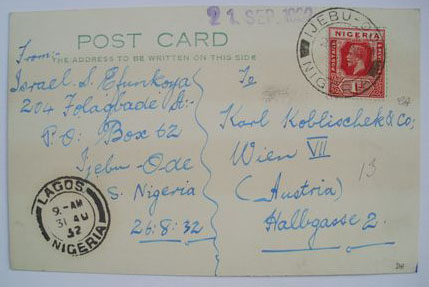 21 SEP. 1932
POST CARD
THE ADDRESS TO BE WRITTEN ON THIS SIDE
From:-
Israel S. Efunkoya
204 Folagbade St:-
P.O: Box 62
Ijebu-Ode
S. Nigeria
26:8:32
LAGOS
9-AM
31 AU
32
NIGERIA
IJEBU-O
NIG
NIGERIA
POSTAGE
To
Karl Koblischek & Co,
Wien VII
(Austria)
Halbgasse 2.
13